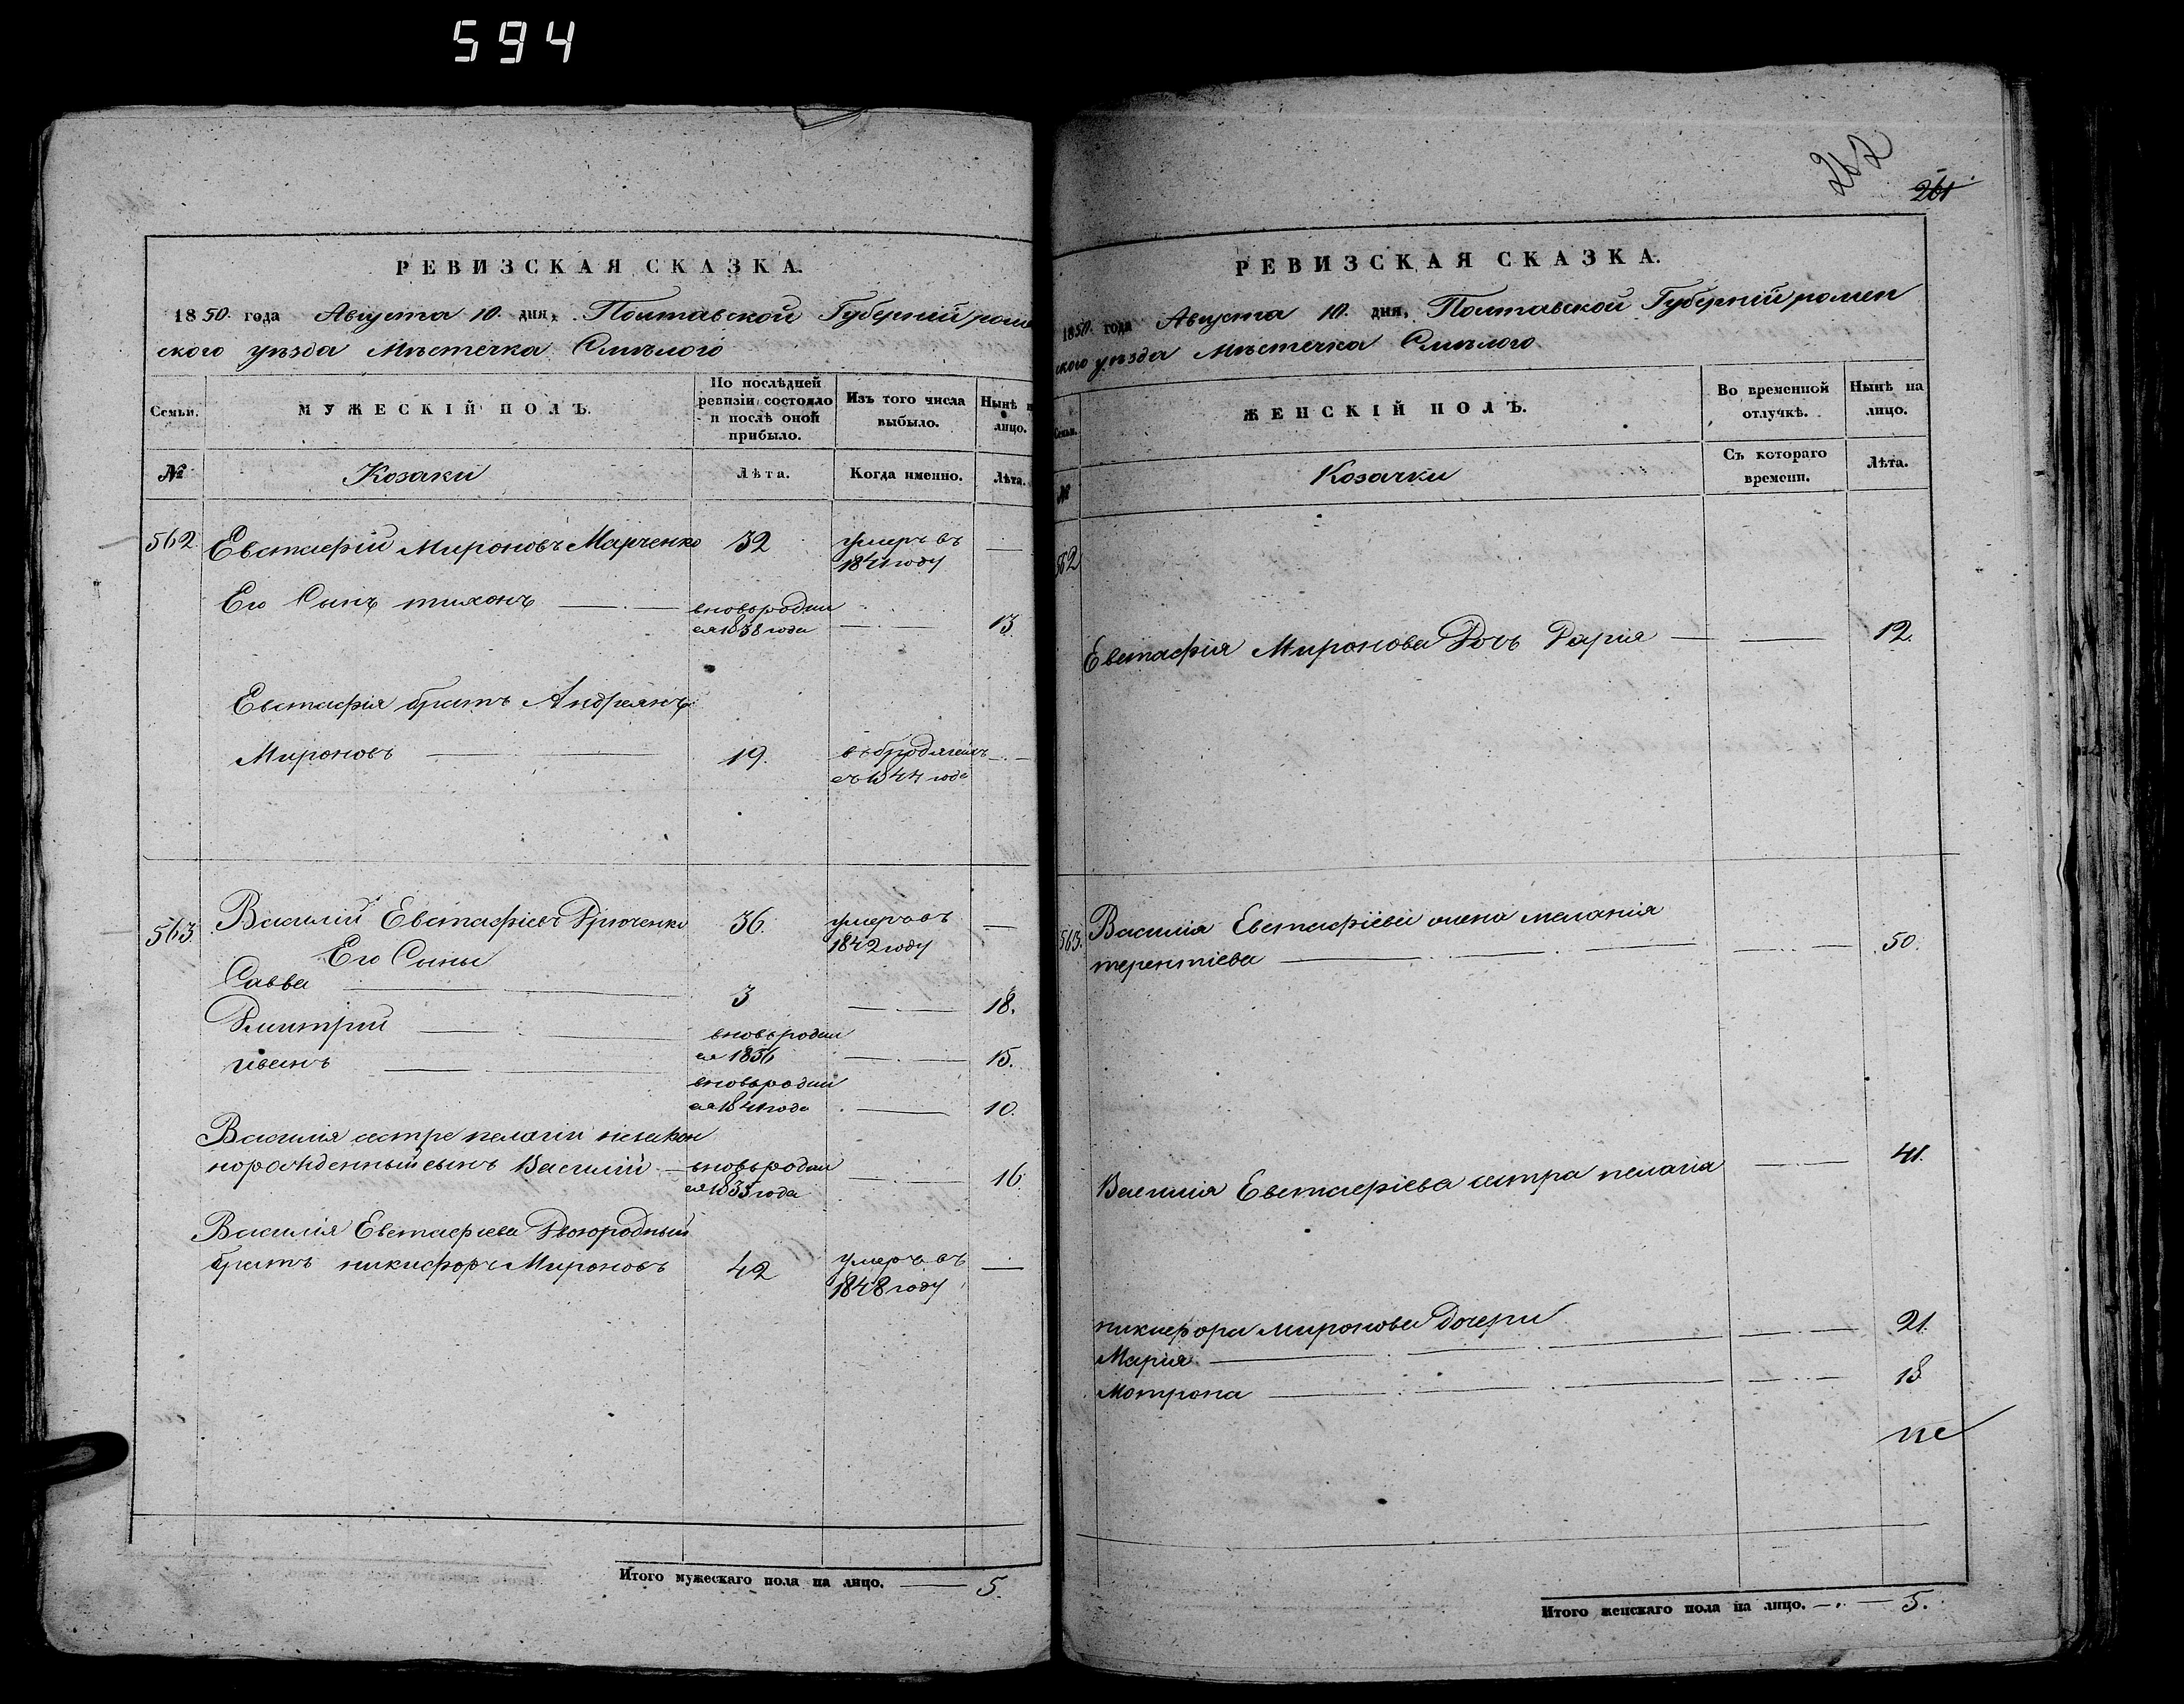 594
РЕВИЗСКАЯ СКАЗКА.
1850. года Августа 10. дня, Полтавской Губерній ромен
ского уѣзда Мѣстечка Смѣлого
Семьи.
МУЖЕСКІЙ ПОЛЪ.
По послѣдней ревизіи состояло и послѣ оной прибыло.
Изъ того числа выбыло.
Нынѣ на лицо.
№
Козаки
Лѣта.
Когда именно.
Лѣта.
562. Евстафій Мироновъ Марченко 32 умеръ въ
1841 году
Его Сынъ тихонъ вновьродил
ся 1838 года 13.
Евстафія братъ Андреянъ
Мироновъ 19. въ бродягахъ
съ 1844 года
563. Василій Евстафіевъ Крюченко 36. умеръ въ
1842 году
Его Сыны
Савва 3 18.
Дмитрій вновьродил
ся 1836 15.
иванъ вновьродил
ся 1841 года 10.
Василія сестре пелагіи незакон
норожденный сынъ Василій вновьродил
ся 1835 года 16.
Василія Евстафіева Двоюродный
братъ никифоръ Мироновъ 42 умеръ въ
1848 году
Итого мужескаго пола на лицо. 5.
262
261
РЕВИЗСКАЯ СКАЗКА.
1850. года Августа 10. дня, Полтавской Губерній ромен
ского уѣзда Мѣстечка Смѣлого
Семьи.
ЖЕНСКІЙ ПОЛЪ.
Во временной отлучкѣ.
Нынѣ на лицо.
№
Козачки
Съ котораго времени.
Лѣта.
562
Евстафія Миронова Дочь Дарія 12.
563. Василія Евстафіева жена меланія
терентіева 50.
Василія Евстафіева сестра пелагія 41.
никифора миронова дочери
Марія 21.
Мотрона 18.
Итого женскаго пола на лицо. 5.